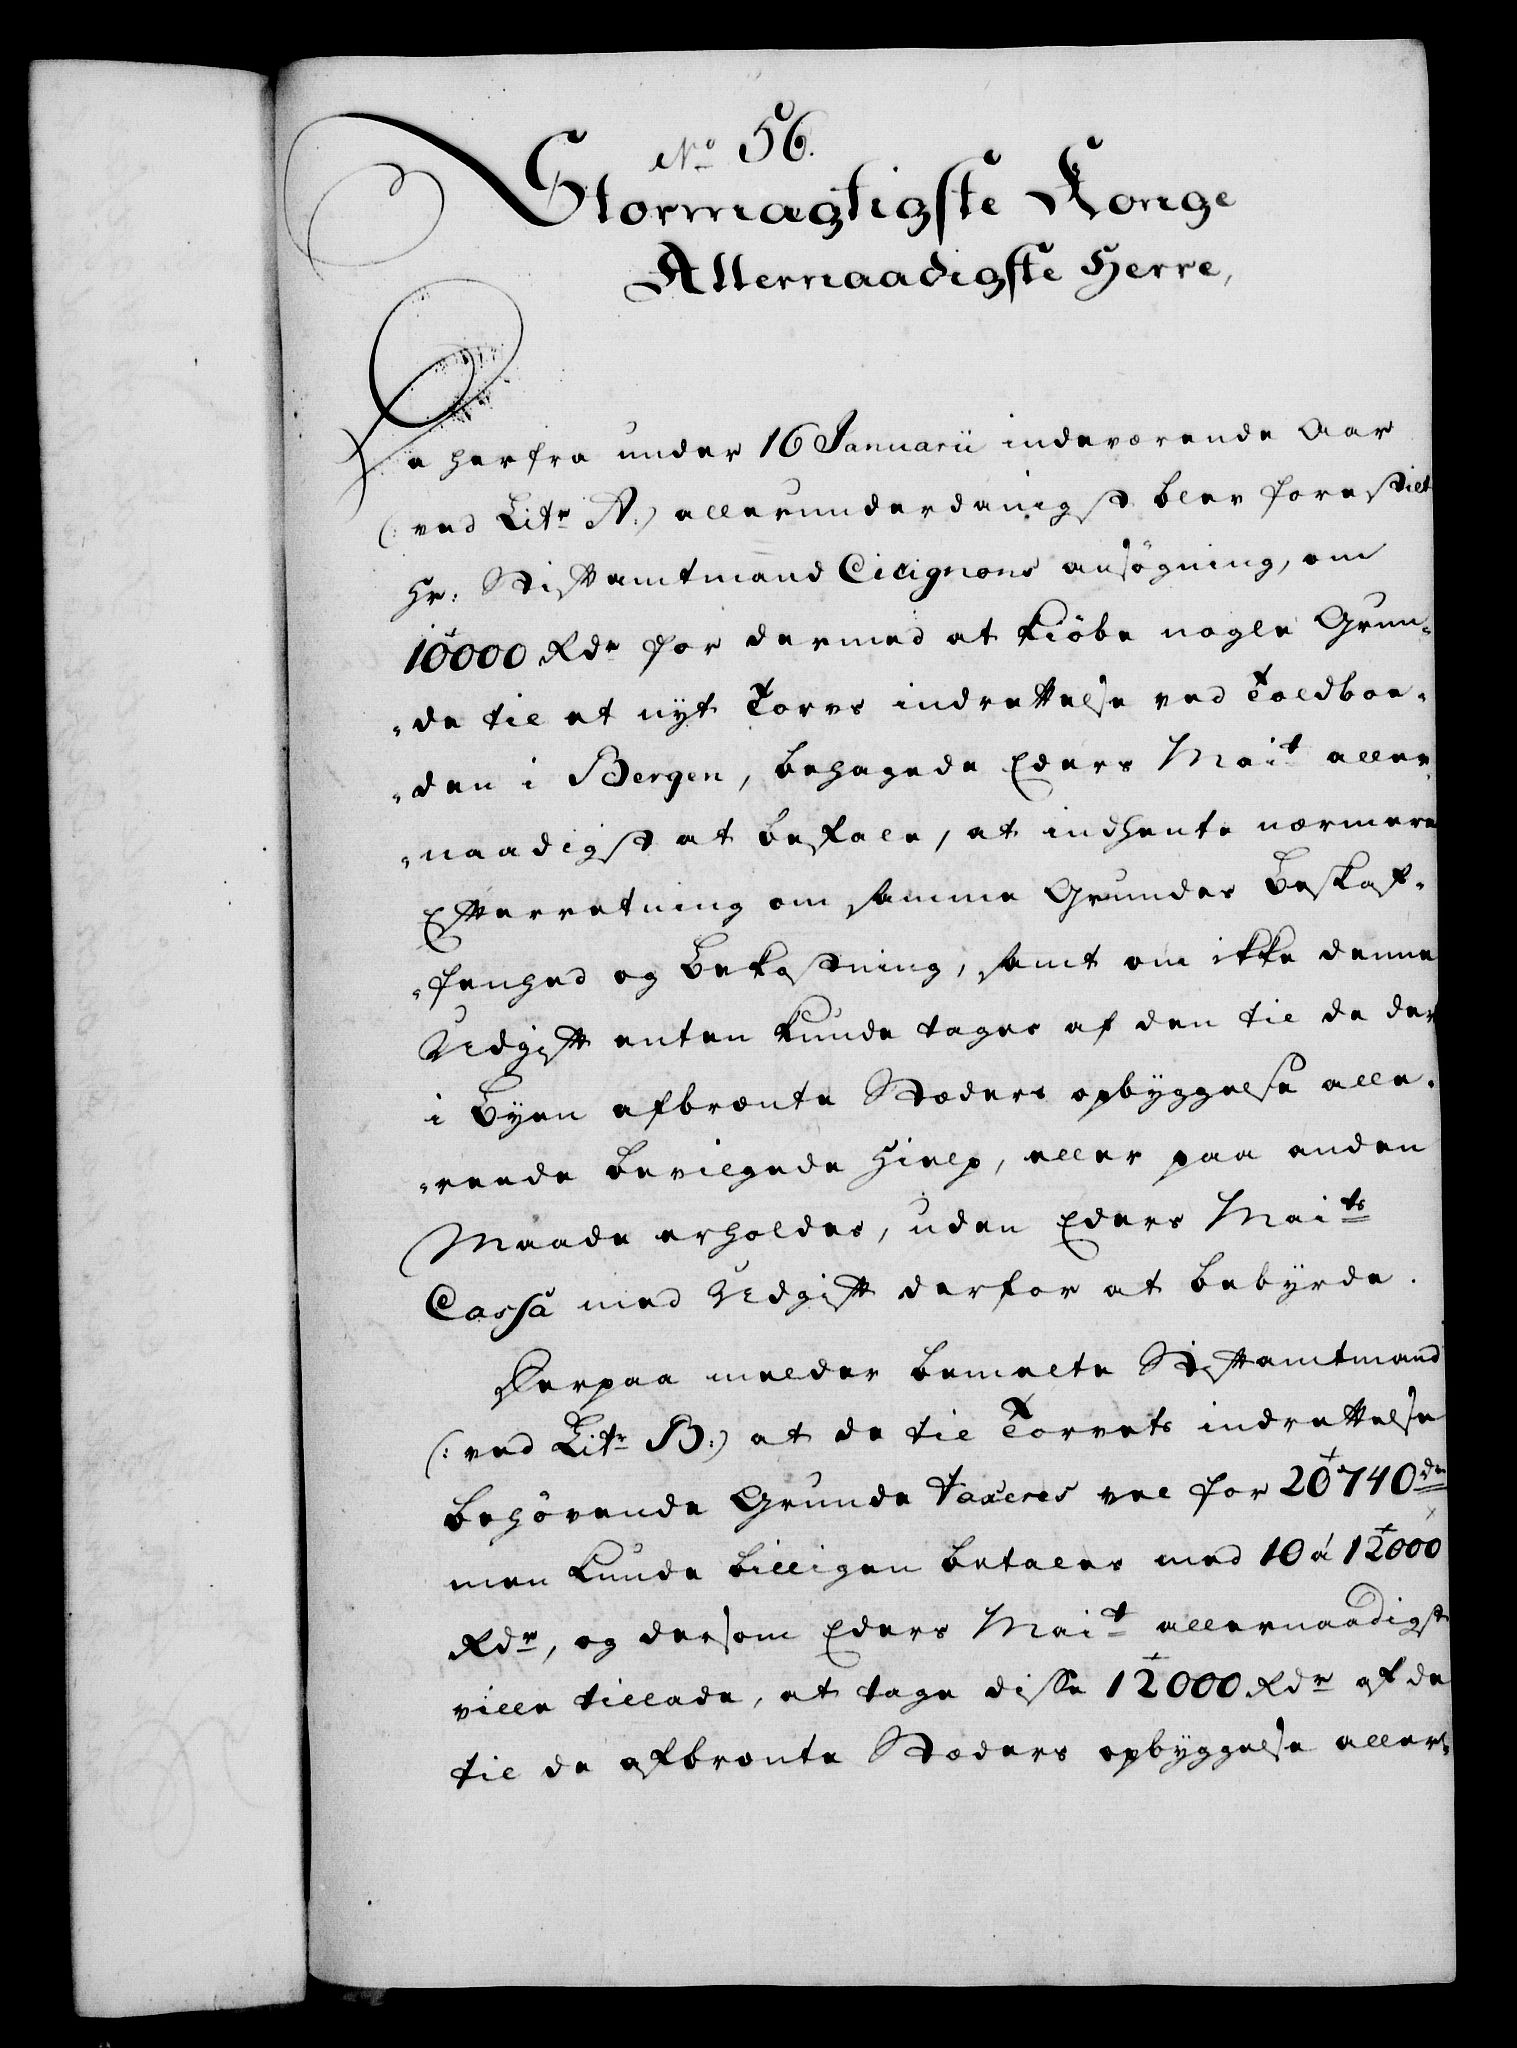 No 56.
Stormægtigste Konge
Allernaadigste Herre,
Da herfra under 16 Januarii indeværende Aar
(: ved Litr A:) allerunderdanigst blev forestilt
Hr: Stiftamtmand Cicignons ansøgning, om
10000 Rdr for dermed at kiöbe nogle Grun-
-de til et nyt Torvs indrettelse ved Toldboe-
-den i Bergen, behagede Eders Mait aller-
-naadigst at befale, at indhente nærmere
Efterretning om samme Grundes Beskaf-
-fenhed og Bekostning, samt om ikke denne
Udgift enten kunde tages af den til de der
i Byen afbrænte Stæders opbyggelse alle-
-reede bevilgede Hielp, eller paa anden
Maade erholdes, uden Eders Maits
Cassa med Udgift derfor at bebyrde.
Herpaa melder bemelte Stiftamtmand
(: ved Litr B:) at de til Torvets indrettelse
behøvende Grunde taxeres vel for 20740 dr
men kunde billigen betales med 10 á 12000
Rdr, og dersom Eders Mait allernaadigst
ville tillade, at tage disse 12000 Rdr af de
til de afbrænte Stæders opbyggelse aller-